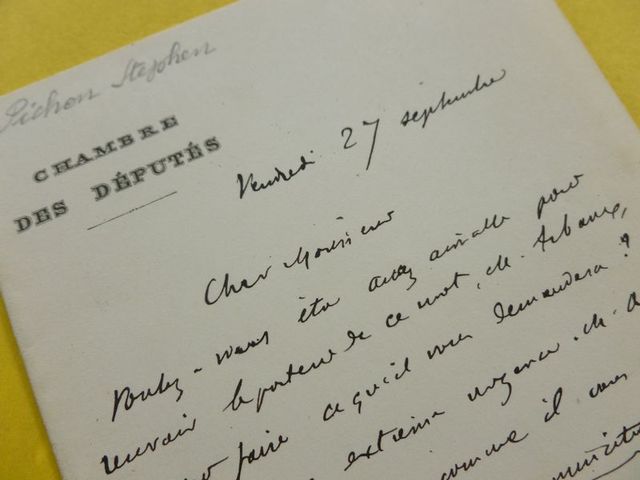 Pichon Stephen
CHAMBRE
DES DÉPUTÉS
Vendredi 27 septembre
Cher Monsieur
Voulez-vous être assez aimable pour
recevoir le porteur de ce mot, M.
faire ce qu'il vous demandera ?
extrême urgence
comme il vous